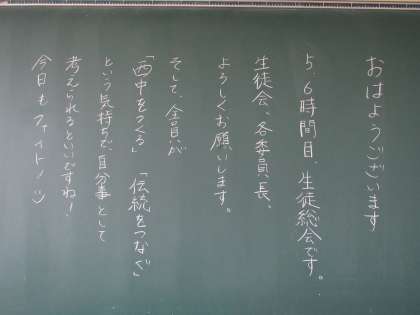 おはようございます
5、6時間目、生徒総会です。
生徒会、各委員長、
よろしくお願いします。
そして、全員が
「西中をつくる」「伝統をつなぐ」
という気持ちで自分事として
考えられるといいですね！
今日もファイト！:)